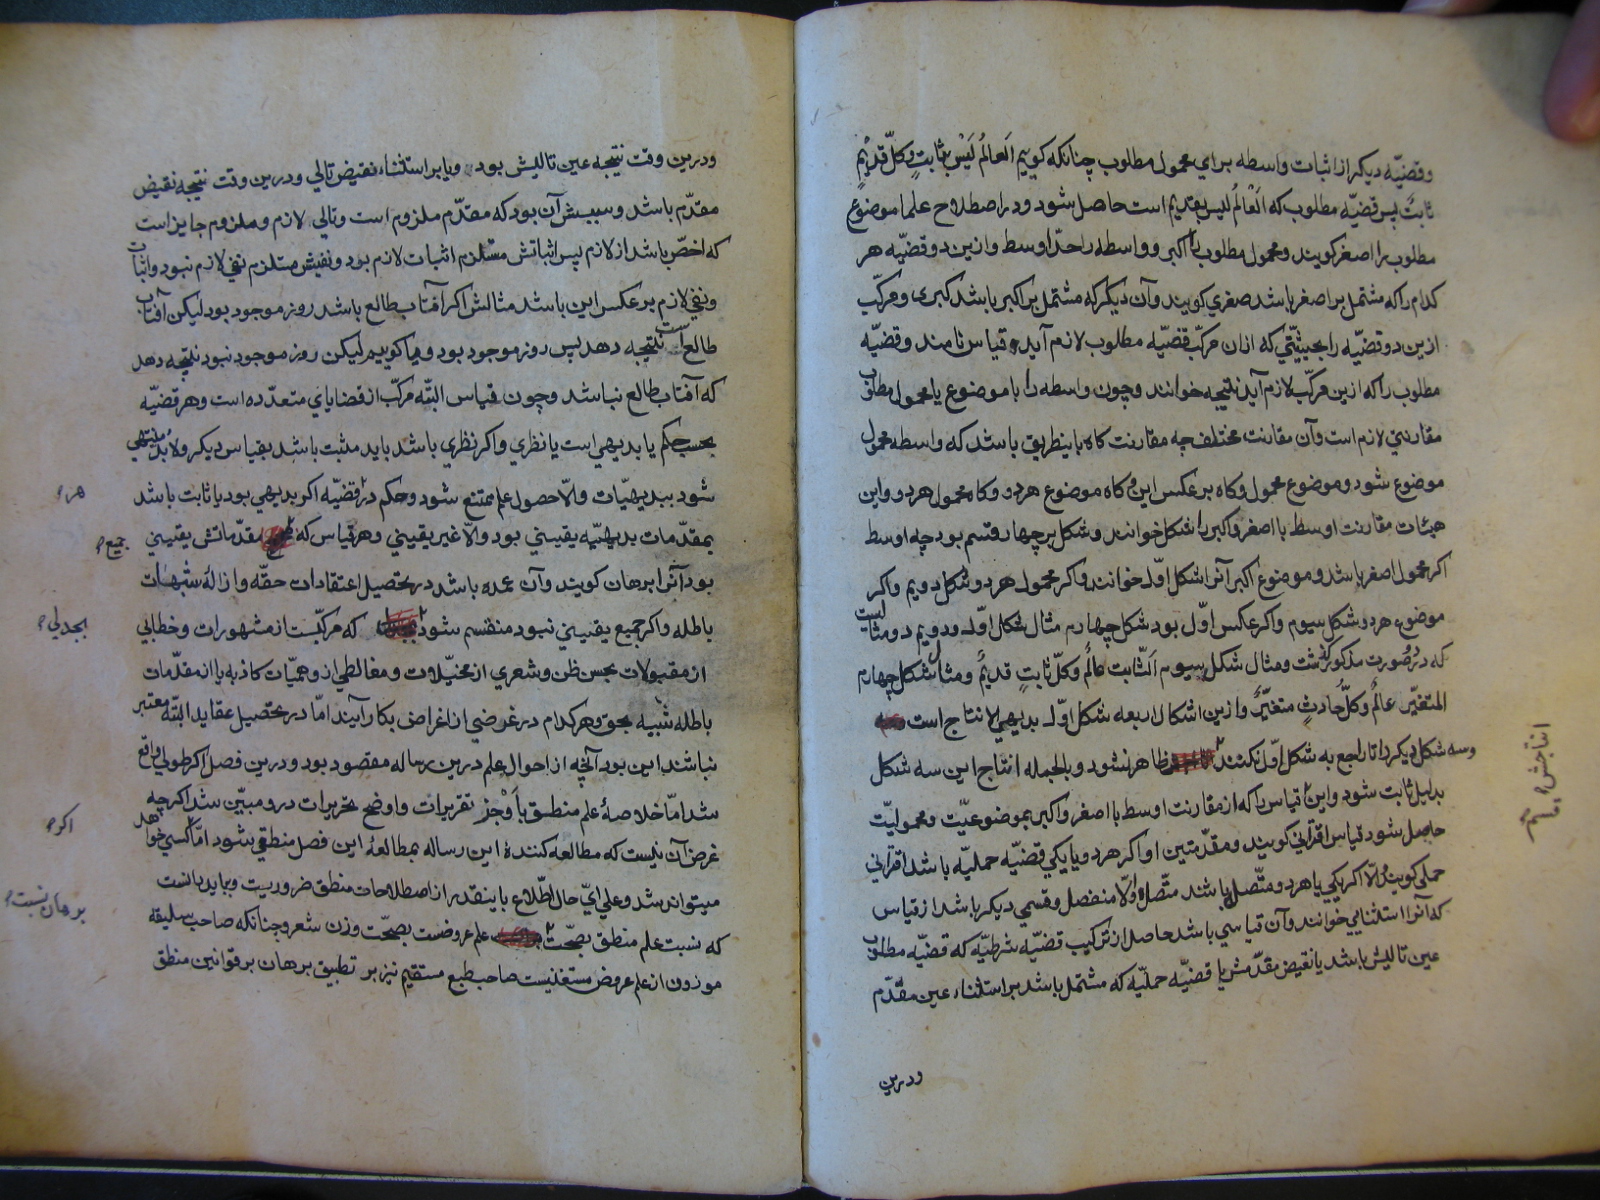 وقضیّه دیکر از اثبات واسطه برای محمول مطلوب چنانکه کوییم اَلعالمُ لَیْسَ بثابتٍ وکلّ قدیْمٍ
ثابتٌ پس قضیّه مطلوب که اَلْعالمُ لیس بقدیم است حاصل شود و در اصطلاح علما موضوع
مطلوب را اصغر کویند و محمول مطلوب را اکبر و واسطه را حدّ اوسط و ازین دو قضیّه هر
کدام را که مشتمل بر اصغر باشد صغری کویند و آن دیکر که مشتمل بر اکبر باشد کبری و مرکّب
ازین دو قضیّه را بحیثیّتی که ازان مرکّب قضیّه مطلوب لازم آید قیاس نامند و قضیّه
مطلوب را که ازین مرکّب لازم آید نتیجه خوانند و چون واسطه را با موضوع یا محمول مطلوب
مقارنتی لازم است و آن مقارنت مختلف چه مقارنت کاه باینطریق باشد که واسطه محمول
موضوع شود و موضوع محمول و کاه برعکس این و کاه موضوع هردو و کاه محمول هردو و این
هیئات مقارنت اوسط با اصغر و اکبر را شکل خوانند و شکل بر چهار قسم بود چه اوسط
اکر محمول اصغر باشد و موضوع اکبر آنرا شکل اوّل خوانند و اکر محمول هردو شکل دویم و اکر
موضوع هردو شکل سیوم و اکر عکس اوّل بود شکل چهارم مثال شکل اوّل و دویم دو مثالیست
که در صورت مذکور کذشت و مثال شکل سیوم اَلثّابت عالمٌ وکلّ ثابتٍ قدیمٌ و مثال شکل چهارم
المتغیّر عالمٌ وکلُّ حادثٍ متغیّرٌ و ازین اشکال اربعه شکل اوّل بدیهی الانتاج است
وسه شکل دیکر را تا راجع به شکل اوّل نکنند ظاهر نشود و بالجمله انتاج این سه شکل
انتاجش
بدلیل ثابت شود و این قیاس را که از مقارنت اوسط با اصغر و اکبر بموضوعیّت و محمولیّت
حاصل شود قیاس اقترانی کویند و مقدّمتین او اکر هردو یا یکی قضیّه حملیّه باشد اقترانی
حملی کویند والّا اکر یکی یا هردو متّصل باشند متّصل والّا منفصل و قسمی دیکر باشد از قیاس
که آنرا استثنایی خوانند و آن قیاسی باشد حاصل از ترکیب قضیّه شرطیّه که قضیّه مطلوب
عین تالیش باشد یا نقیض مقدّمش با قضیّه حملیّه که مشتمل باشد بر استثناء عین مقدّم
ودرین
ودرین وقت نتیجه عین تالیش بود و یا بر استثناء نقیض تالی و درین وقت نتیجه نقیض
مقدّم باشد و سببش آن بود که مقدّم ملزوم است و تالی لازم و ملزوم جایز است
که اخصّ باشد از لازم پس اثباتش مستلزم اثبات لازم بود و نفیش مستلزم نفی لازم نبود و اثبات
ونفی لازم برعکس این باشد مثالش اکر آفتاب طالع باشد روز موجود بود لیکن آفتاب
طالع است نتیجه دهد پس روز موجود بود و هرکا کوییم لیکن روز موجود نبود نتیجه دهد
که آفتاب طالع نباشد و چون قیاس البتّه مرکّب از قضایای متعدّده است و هر قضیّه
بحسب حکم یا بدیهی است یا نظری و اکر نظری باشد باید مثبت باشد بقیاس دیکر ولا بُدّ منتهی
شود ببدیهیّات والّا حصول علم ممتنع شود و حکم در قضیّه اکر بدیهی بود یا ثابت باشد
هر
بمقدّمات بدیهیّه یقینی بود والّا غیر یقینی و هر قیاس که مقدّماتش یقینی
جمیع
بود آنرا برهان کویند و آن عمده باشد در تحصیل اعتقادات حقّه و ازالهٔ شبهات
باطله و اکر جمیع یقینی نبود منقسم شود که مرکّبست از مشهورات و خطابی
بجدلی
از مقبولات بحسن ظن و شعری از مخیّلات و مغالطی از وهمیّات کاذبه یا از مقدّمات
باطله شبیه بحق و هرکدام در غرضی از اغراض بکار آیند امّا در تحصیل عقاید البتّه معتبر
نباشند این بود آنچه از احوال علم درین رساله مقصود بود و درین فصل اکر طولی واقع
شد امّا خلاصهٔ علم منطق باَوْجَز تقریرات و اوضح تحریرات درو مبیّن شد اکرچه
غرض آن نیست که مطالعه کنندهٔ این رساله بمطالعهٔ این فصل منطقی شود امّا کسی خواهد
اکر
میتواند شد و علی ایّ حال اطّلاع باینقدر از اصطلاحات منطق ضروریست و بباید دانست
که نسبت علم منطق بصحّت علم عروضست بصحّت وزن شعر و چنانکه صاحب سلیقه
برهان نسبت
موزون از علم عروض مستغنیست صاحب طبع مستقیم نیز بر تطبیق برهان بر قوانین منطق